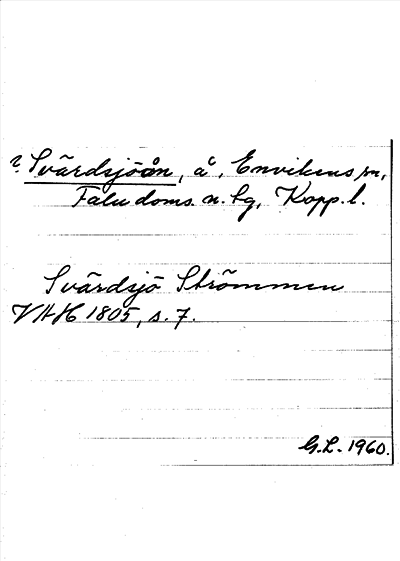 ? Svärdsjöån, å, Envikens sn,
Falu doms. n. tg, Kopp. l.
Svärdsjö Strömmen
VAH 1805, s. 7.
G.L. 1960.